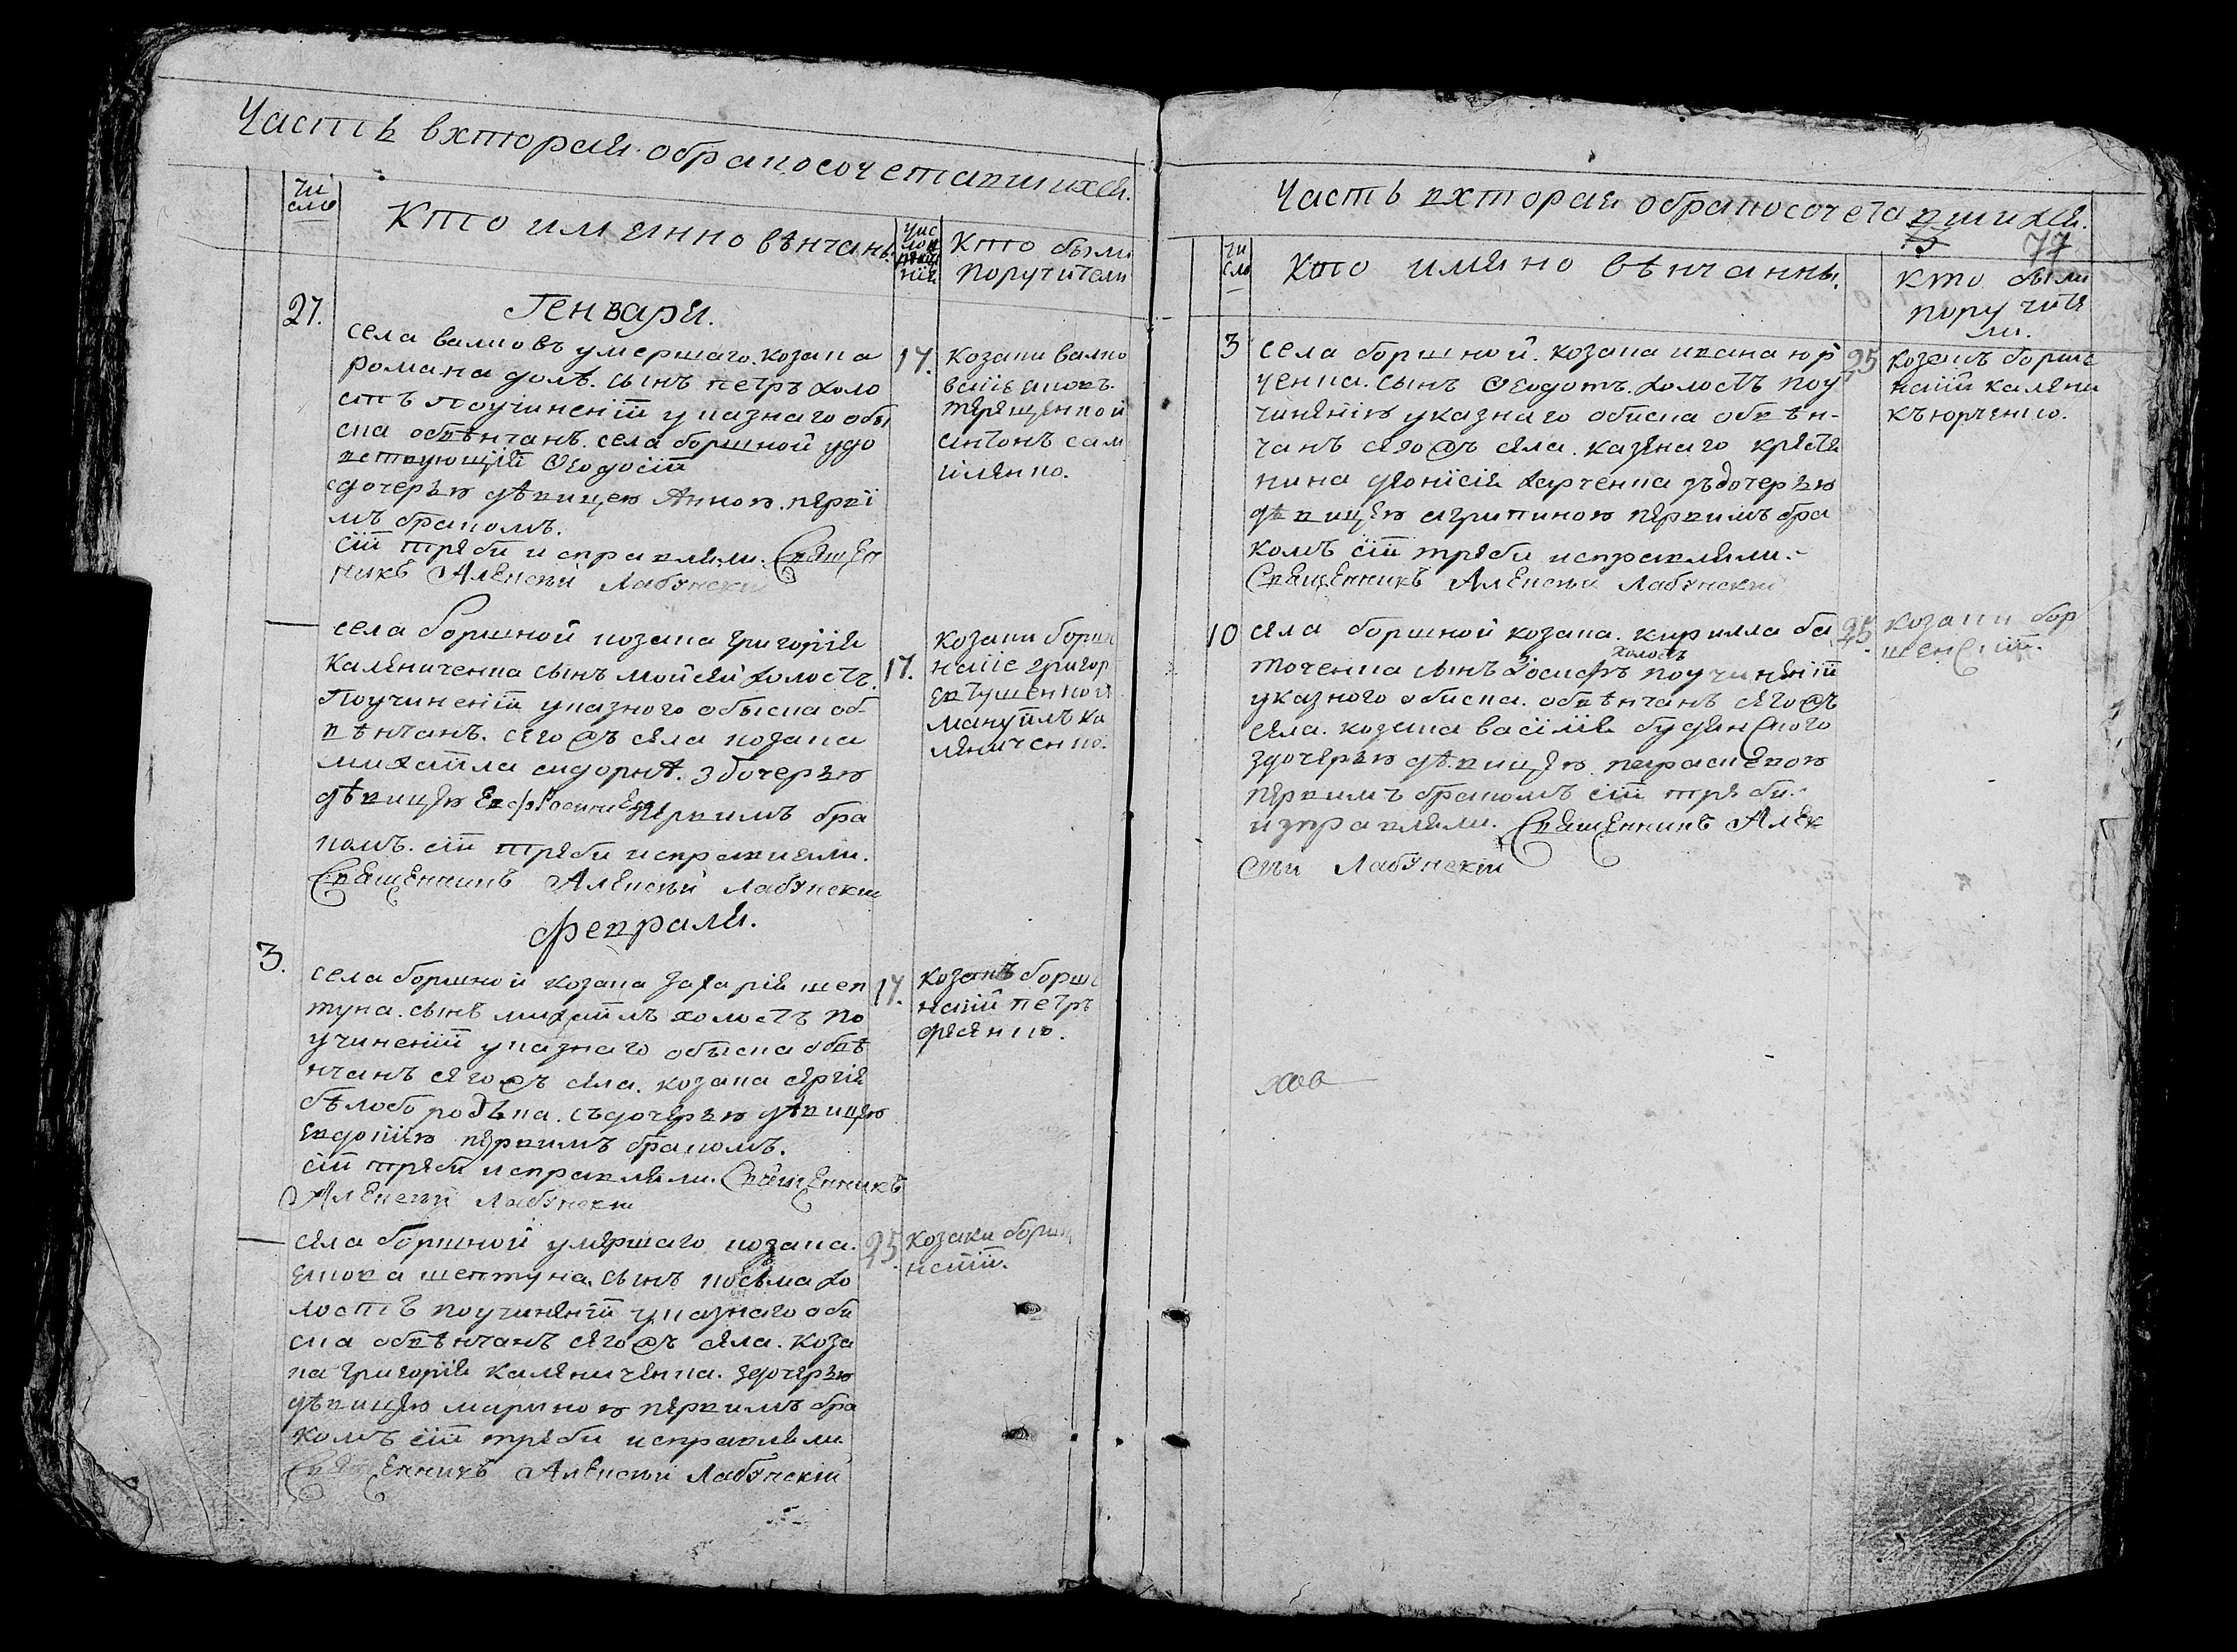 Часть вхторая обракосочетавшихся.
Чи
сло
Кто имянно вѣнчаны.
Кто были
поручители
27.
Генваря.
села валковъ умершаго козака
17.
Романа сынъ петръ холо
стъ поучиненіи указнаго обы
ска обвѣнчанъ. села боршной удо
вствующій Ѳеодосіи
сдочерью дѣвицею Анною. перві
мъ бракомъ.
сіи треби исправляли. Священ
никъ Алексѣй Лабунскій
козаки валко
терещенкой
антонъ сам
йленко.
села боршной козака григорія
каляниченка сынъ мойсей холостъ.
17.
поучиненіи указного обыска об
вѣнчанъ. сегожъ села козака
михаила сидорки. здочерью
дѣвицею Евфросиніею первимъ бра
комъ. сіи треби исправляли.
Священникъ Алексѣй Лабунскій
козаки борш
нскіе григор
мануилъ ка
ляниченко.
февраля.
3.
села боршной козака захарія шеп
17.
туна. сынъ михаилъ холостъ по
учиненіи указнаго обыска обвѣ
нчанъ сегожъ села. козака сергія
бѣлобородька. съдочерью дѣвицею
евдокіею первимъ бракомъ.
сіи треби исправляли. Священникъ
Алексѣй Лабунскій
козакъ борше
нскій петръ
фесенко.
села боршной умершаго козака.
25.
якова шептуна. сынъ козьма хо
лостъ поучиненіи указнаго оби
ска обвѣнчанъ сегожъ села. коза
ка григорія каляниченка. здочерью
дѣвицею мариною первимъ бра
комъ сіи треби исправляли
Священникъ Алексѣй Лабунскій
козаки борш
нскіи.
Часть вхторая обракосочетавшихся.
77
чи
сло
Кто имяно вѣнчанны.
Кто были
поручите
ли.
3
села боршной. козака ивана юр
25
ченка. сынъ Ѳеодотъ. холостъ поу
чиненію указнаго обиска обвѣн-
чанъ сегожъ села. казенаго кристя
нина деонісія харченка здочерью
дѣвицею агрипиною первимъ бра
комъ сіи треби исправляли.
Священникъ Алексѣй Лабунскій
козакъ борше
нскій каляни
къ юрченко.
10
села боршной козака. кирилла ба
25.
холостъ
точенка сынъ Иосифъ поучиненіи
указного обиска. обвѣнчанъ сегожъ
села. козака василія будянского
здочерью дѣвицею параскевою
первимъ бракомъ сіи треби.
изправляли. Священникъ Алек
сѣй Лабунскій
козаки бор
шенскіи.